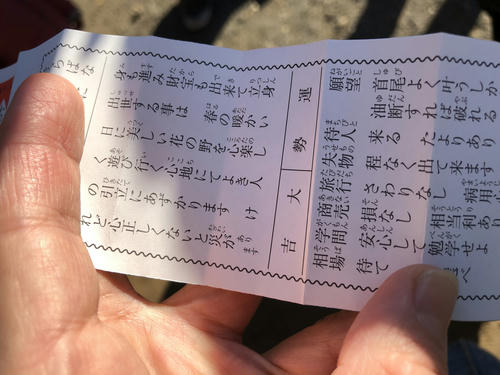 身も進み財宝も出来て立身
出世する事は春の暖かい
日に美しい花の野を心楽し
く遊び行く心地にてよき人
の引立にあずかります け
れど心正しくないと災があります
運勢
大吉
願望 首尾よく叶うしか
油断すれば破れる
待人 来るたよりあり
失物 程なく出て来ます
旅行 さわりなし
商売 損なし 相当利あり
学問 安心して勉学せよ
相場 待て